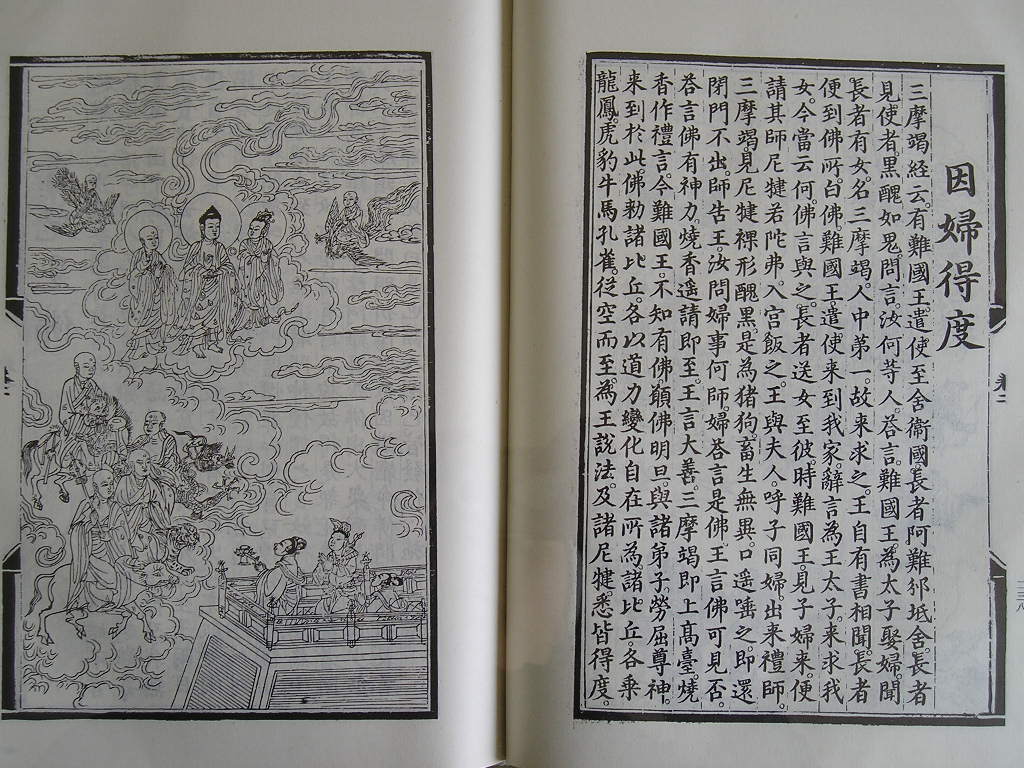 因婦得度
三摩竭経云。有難國王遣使至舍衛國長者阿難邠坻舍。長者
見使者黑醜如鬼。問言。汝何等人。荅言。難國王為太子娶婦。聞
長者有女名三摩竭。人中第一。故来求之。王自有書相聞。長者
便到佛所。白佛。難國王遣使来到我家。辭言為王太子。来求我
女。今當云何。佛言與之。長者送女至彼。時難國王。見子婦来。便
請其師尼犍若陀弗。入宮飯之。王與夫人。呼子同婦。出来禮師。
三摩竭見尼犍裸形醜黑。是為猪狗畜生無異。口遥唾之。即還
閉門不出。師告王。汝問婦事何師。婦荅言是佛。王言佛可見否。
荅言佛有神力。燒香遥請即至。王言大善。三摩竭即上高臺。燒
香作禮言。今難國王。不知有佛。願佛明旦。與諸弟子。勞屈尊神。
来到於此。佛勅諸比丘。各以道力變化自在所為。諸比丘。各乗
龍鳳。虎豹牛馬孔雀。従空而至。為王説法。及諸尼犍。悉皆得度。